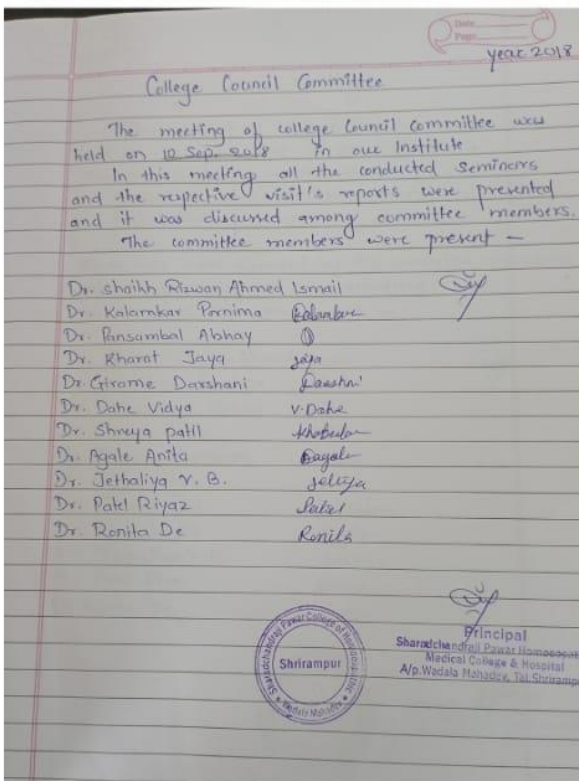 Date
Page
year 2018
College Council Committee
The meeting of college Council committee was
held on 10 Sep. 2018 in our Institute
In this meeting all the conducted Seminars
and the respective visit's reports were presented
and it was discussed among committee members.
The committee members were present —
Dr. Shaikh Rizwan Ahmed Ismail
Dr. Kalamkar Pornima
Dr. Pansambal Abhay
Dr. Kharat Jaya Jaya
Dr. Girame Darshani
Dr. Dahe Vidya V. Dahe
Dr. Shreya patil
Dr. Agale Anita
Dr. Jethaliya V. B.
Dr. Patel Riyaz Patel
Dr. Ronita De Ronita
Principal
Sharadchandraji Pawar Homoeopat
Medical College & Hospital
A/p.Wadala Mahadev, Tal.Shriramp
Sharadchandraji Pawar College of
Shrirampur
Wadala Mahadev